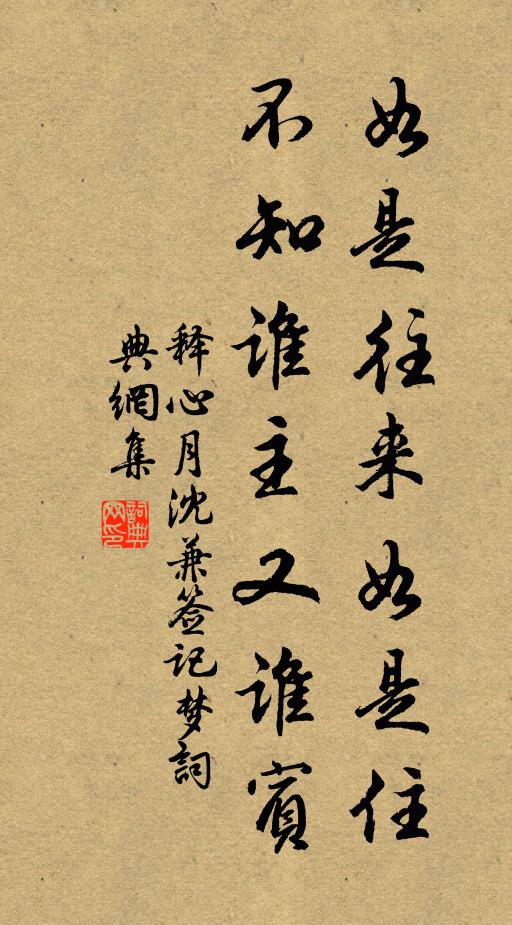 如是往来如是住
不知谁主又谁宾
释心月沈兼签记梦詞
典網集
詞典
网印